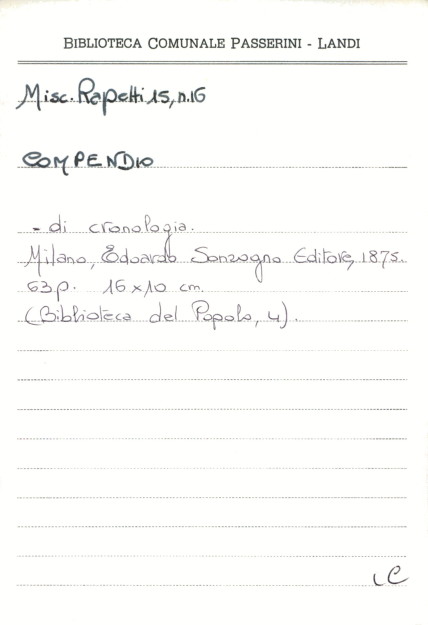 BIBLIOTECA COMUNALE PASSERINI - LANDI
Misc. Rapetti 15, n.16
COMPENDIO
- di cronologia.
Milano, Edoardo Sonzogno Editore, 1875.
63p. 16x10 cm.
(Biblioteca del Popolo, 4).